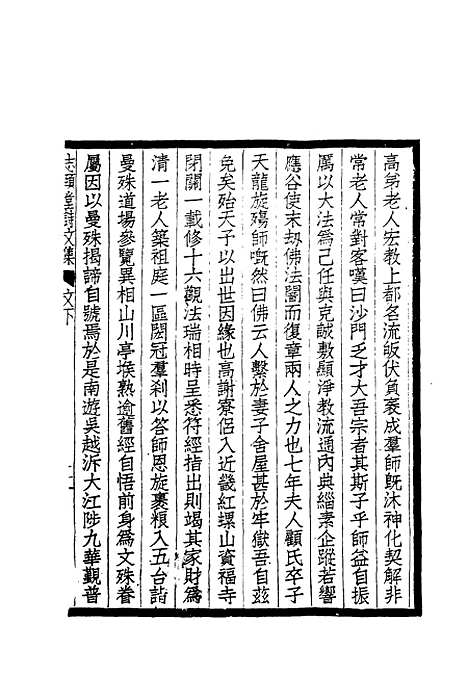 高弟老人宏教上都名流皈伏負裹成羣師旣沐神化契解非
常老人常對客嘆曰沙門乏才大吾宗者其斯子乎師益自振
厲以大法爲己任與克誠敷顯淨教流通內典緇素企蹤若響
應谷使末刼佛法闇而復章兩人之力也七年夫人顧氏卒子
天龍旋殤師慨然曰佛云人繫於妻子舍屋甚於牢獄吾自茲
免矣殆天子以出世因緣也高謝寮侶入近畿紅螺山資福寺
閉關一載修十六觀法瑞相時呈悉符經指出則竭其家財爲
清一老人築祖庭一區閎冠羣刹以答師恩旋裹糧入五台詣
曼殊道場參覽異相山川亭堠熟逾舊經自悟前身爲文殊眷
屬因以曼殊揭諦自號焉於是南遊吳越泝大江陟九華覲普
堂詩文集 文下